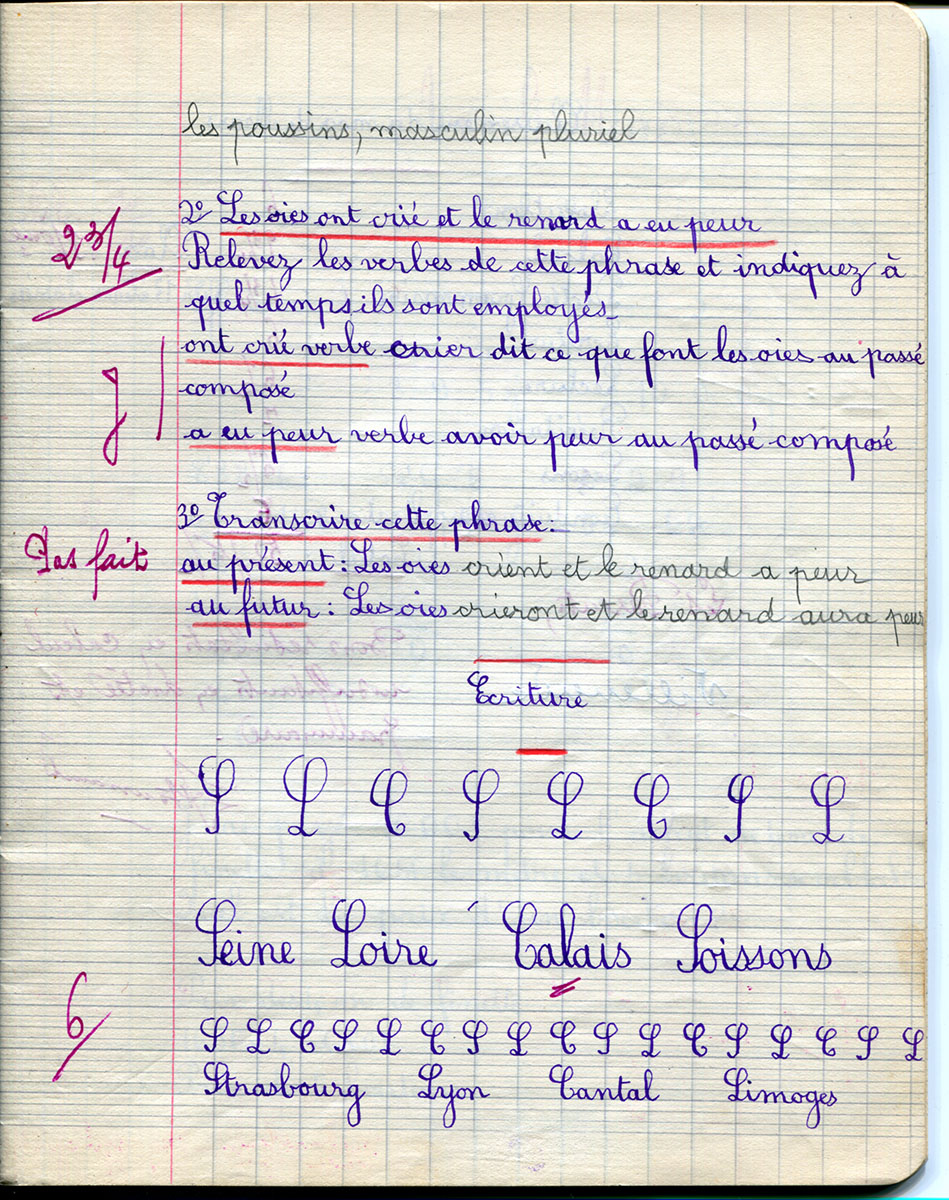 les poussins, masculin pluriel
2º Les oies ont crié et le renard a eu peur
2 3/4
Relevez les verbes de cette phrase et indiquez à
quel temps ils sont employés
ont crié verbe crier dit ce que font les oies au passé
composé
a eu peur verbe avoir peur au passé composé
3º Transcrire cette phrase:
Pas fait
au présent : Les oies crient et le renard a peur
au futur : Les oies crieront et le renard aura peur
Ecriture
S L C S L C S L
Seine Loire Calais Soissons
6
S L C S L C S L C S L C S L C S L
Strasbourg Lyon Cantal Limoges